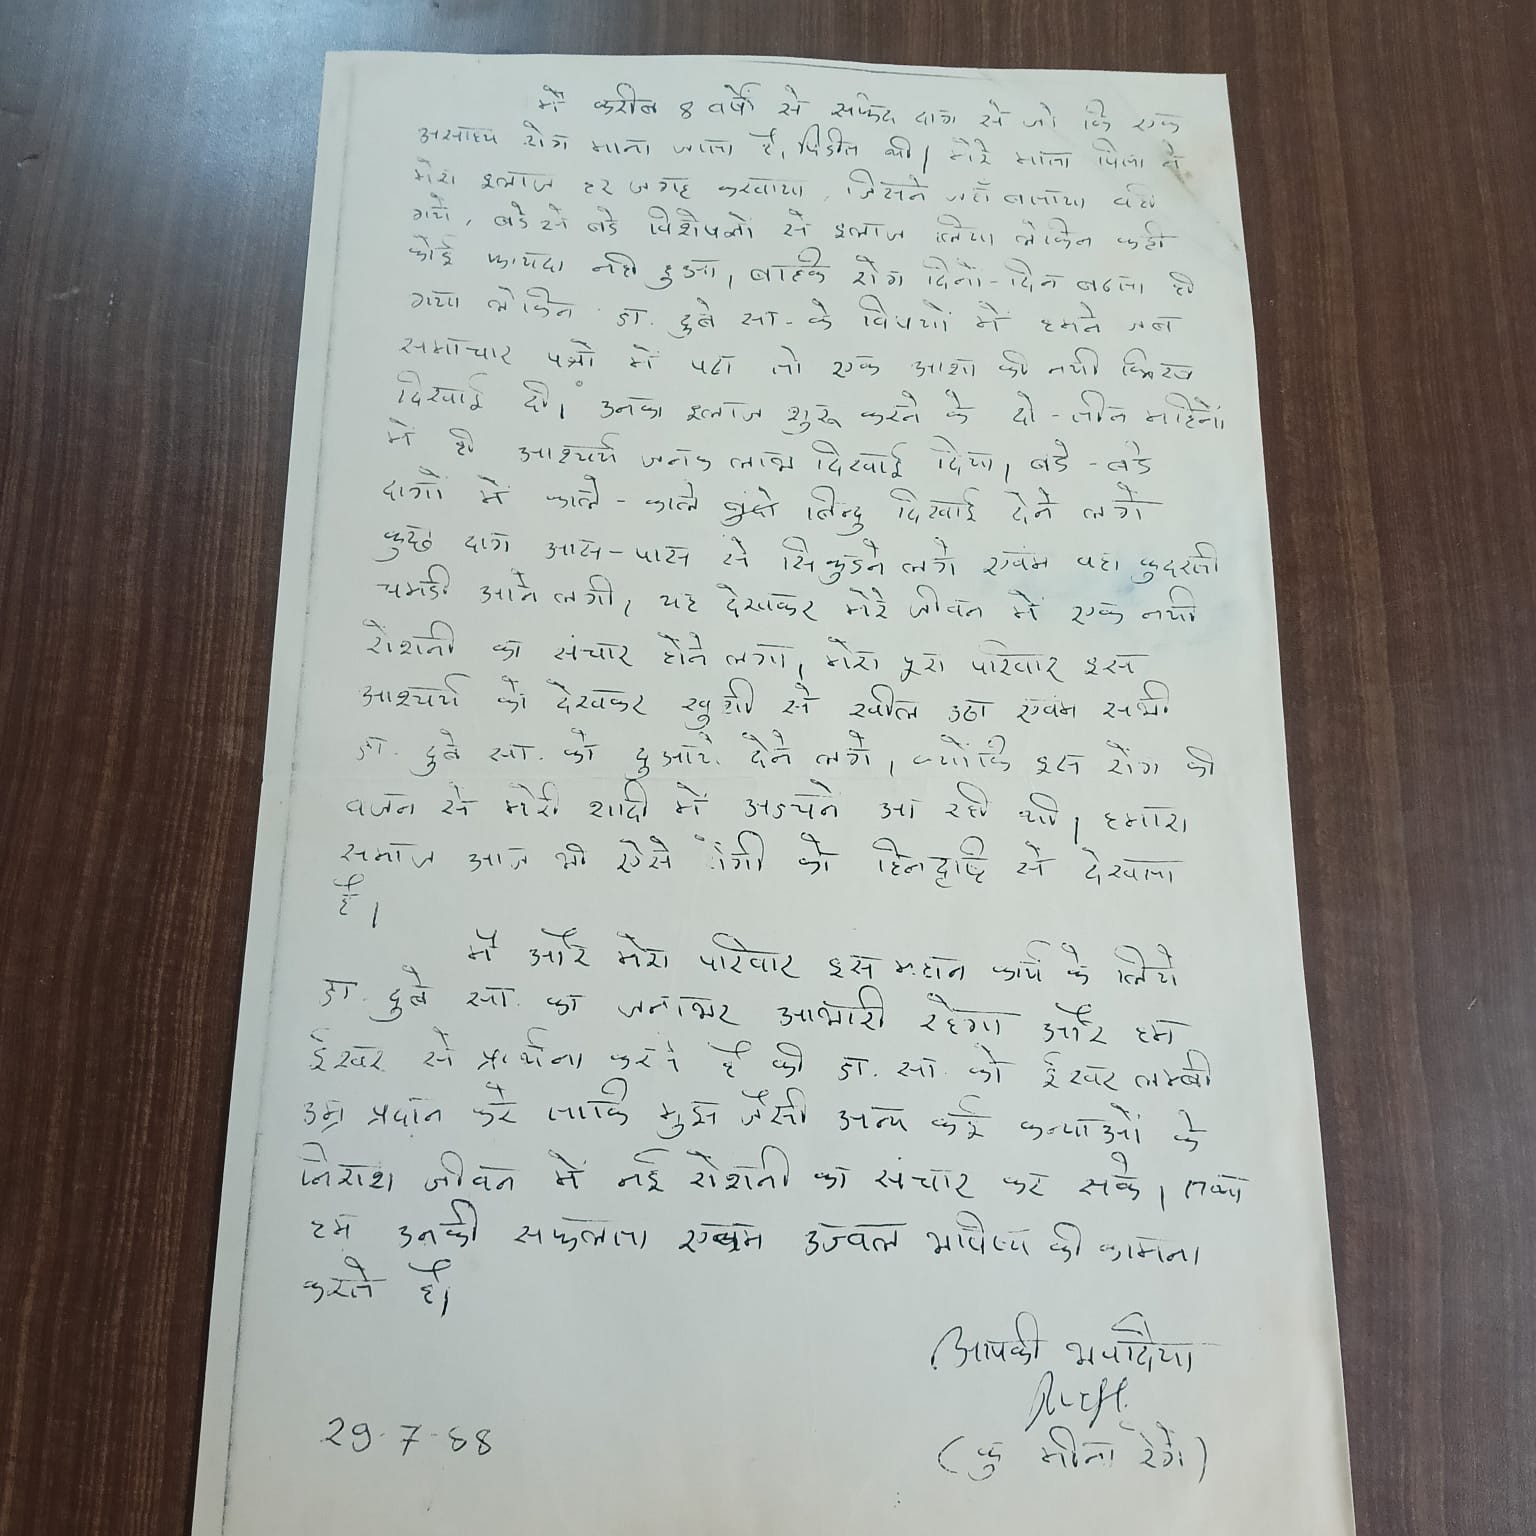 मैं करीब 8 वर्षो से सफेद दाग से जो कि एक
असाध्य रोग माना जाता है, पिडीत थी। मेरे माता पिता ने
मेरा इलाज हर जगह करवाया, जिसने जहाँ बताया वहाँ
गये, बडे से बडे विशेषज्ञो से इलाज लिया लेकिन कही
कोई फायदा नही हुआ, बल्कि रोग दिनों-दिन बढता ही
गया लेकिन डा. दुबे सा. के विषयों में हमने जब
समाचार पत्रो में पढा तो एक आशा की नयी किरण
दिखाई दी। उनका इलाज शुरू करने के दो-तीन महिनों
में ही आश्चर्य जनक लाभ दिखाई दिया, बडे-बडे
दागों में काले-काले बिन्दु दिखाई देने लगे
कुछ दाग आस-पास से सिकुडने लगे एवंम वहा कुदरती
चमडी आने लगी, यह देखकर मेरे जीवन में एक नयी
रोशनी का संचार होने लगा, मेरा पूरा परिवार इस
आश्चर्य को देखकर खुशी से खील उठा एवंम सभी
डा. दुबे सा. को दुआये देने लगे, क्योंकि इस रोग की
वजह से मेरी शादी में अडचने आ रही थी, हमारा
समाज आज भी ऐसे रोगी को हिनदृष्टि से देखता
है।
मैं और मेरा परिवार इस महान कार्य के लिये
डा. दुबे सा. का जन्मभर आभारी रहेगा और हम
ईश्वर से प्रार्थना करते है की डा. सा. को ईश्वर लम्बी
उम्र प्रदान करे ताकि मुझ जैसी अन्य कई कन्याओं के
निराश जीवन में नई रोशनी का संचार कर सके, तथा
हम उनकी सफलता एवंम उज्वल भविष्य की कामना
करते है।
आपकी भवदिया
(कु मीना रेगे)
29-7-88